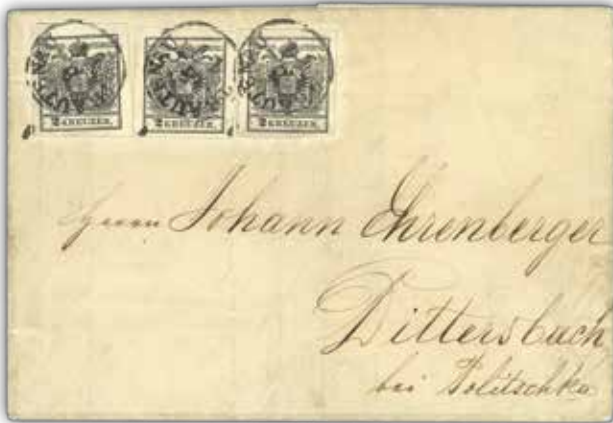 2 KREUZER. 2 KREUZER. 2 KREUZER.
Herrn Johann Ehrenberger
Dittersbach
bei Politschka